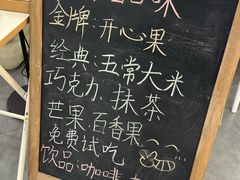 味
金牌:开心果
经典:五常大米
巧克力、抹茶
芒果 百香果
免费试吃
饮品:咖啡